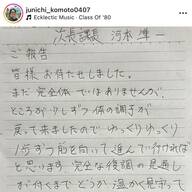 junichi_komoto0407
Ecklectic Music • Class Of '80
次長課長 河本準一
ご報告
皆様お待たせしました。
まだ完全体ではありませんが、
ところが少しずつ体の調子が
戻って来ましたのでゆっくりゆっくり
1歩ずつ前を向いて進んで行ければ
と思います。完全な復調の見通し
が付くまでどうか温かく見守って